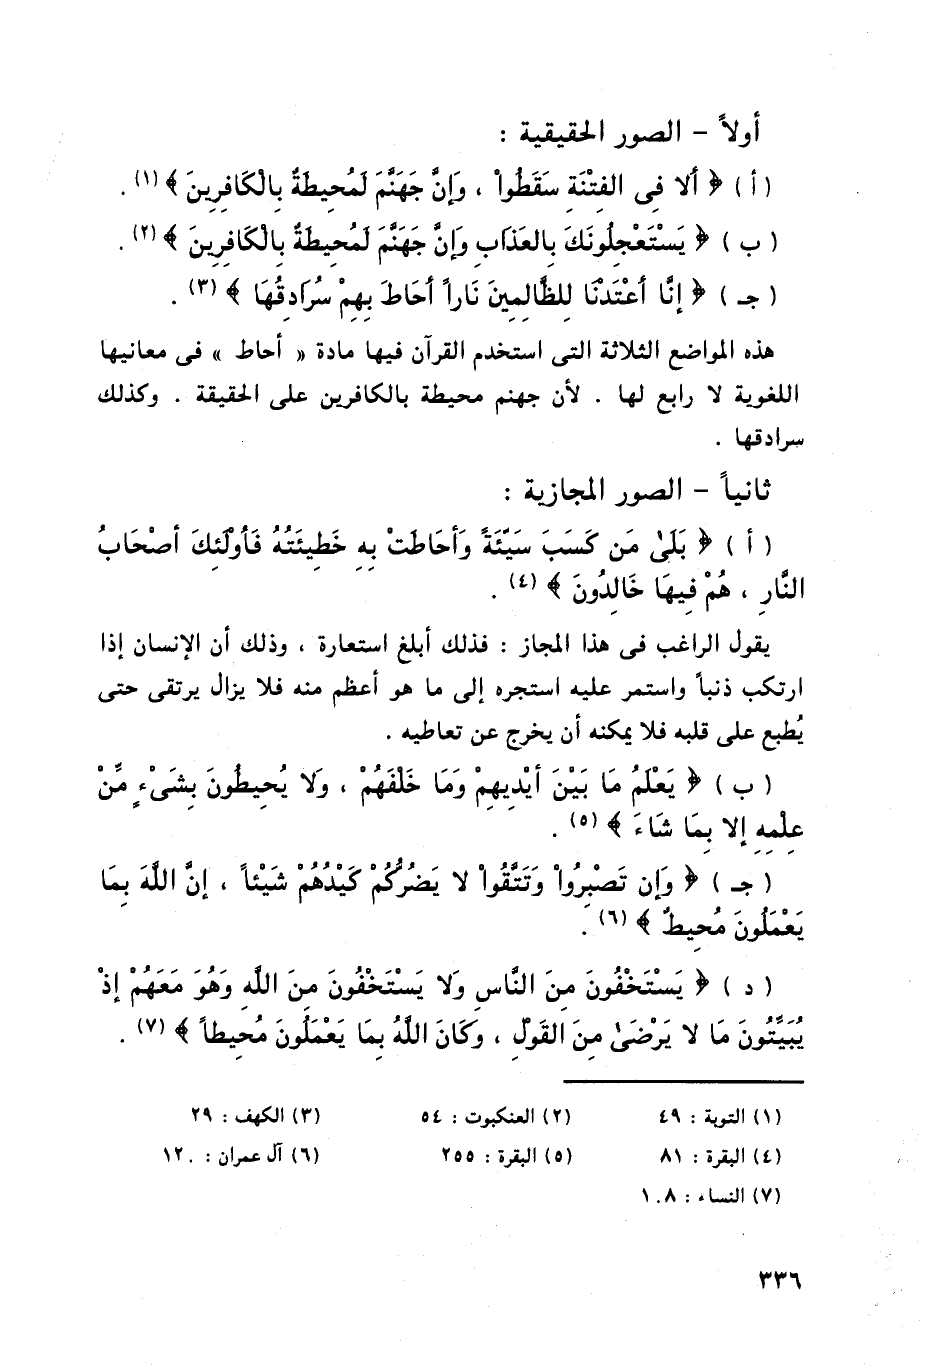 أولاً – الصور الحقيقية :
( أ ) ﴿ أَلَا فِى الفِتْنَةِ سَقَطُواْ ، وَإِنَّ جَهَنَّمَ لَمُحِيطَةٌ بِالْكَافِرِينَ ﴾ (١) .
( ب ) ﴿ يَسْتَعْجِلُونَكَ بِالعَذَابِ وَإِنَّ جَهَنَّمَ لَمُحِيطَةٌ بِالْكَافِرِينَ ﴾ (٢) .
( جـ ) ﴿ إِنَّا أَعْتَدْنَا لِلظَّالِمِينَ نَاراً أَحَاطَ بِهِمْ سُرَادِقُهَا ﴾ (٣) .
هذه المواضع الثلاثة التى استخدم القرآن فيها مادة « أحاط » فى معانيها
اللغوية لا رابع لها . لأن جهنم محيطة بالكافرين على الحقيقة . وكذلك
سرادقها .
ثانياً – الصور المجازية :
( أ ) ﴿ بَلَىٰ مَن كَسَبَ سَيِّئَةً وَأَحَاطَتْ بِهِ خَطِيئَتُهُ فَأُولَٰئِكَ أَصْحَابُ
النَّارِ ، هُمْ فِيهَا خَالِدُونَ ﴾ (٤) .
يقول الراغب فى هذا المجاز : فذلك أبلغ استعارة ، وذلك أن الإنسان إذا
ارتكب ذنباً واستمر عليه استجره إلى ما هو أعظم منه فلا يزال يرتقى حتى
يُطبع على قلبه فلا يمكنه أن يخرج عن تعاطيه .
( ب ) ﴿ يَعْلَمُ مَا بَيْنَ أَيْدِيهِمْ وَمَا خَلْفَهُمْ ، وَلَا يُحِيطُونَ بِشَىْءٍ مِّنْ
عِلْمِهِ إِلا بِمَا شَاءَ ﴾ (٥) .
( جـ ) ﴿ وَإِن تَصْبِرُواْ وَتَتَّقُواْ لَا يَضُرُّكُمْ كَيْدُهُمْ شَيْئاً ، إِنَّ اللَّهَ بِمَا
يَعْمَلُونَ مُحِيطٌ ﴾ (٦) .
( د ) ﴿ يَسْتَخْفُونَ مِنَ النَّاسِ وَلَا يَسْتَخْفُونَ مِنَ اللَّهِ وَهُوَ مَعَهُمْ إِذْ
يُبَيِّتُونَ مَا لَا يَرْضَىٰ مِنَ القَوْلِ ، وَكَانَ اللَّهُ بِمَا يَعْمَلُونَ مُحِيطاً ﴾ (٧) .
(١) التوبة : ٤٩ (٢) العنكبوت : ٥٤ (٣) الكهف : ٢٩
(٤) البقرة : ٨١ (٥) البقرة : ٢٥٥ (٦) آل عمران : ١٢٠
(٧) النساء : ١٠٨
٣٣٦